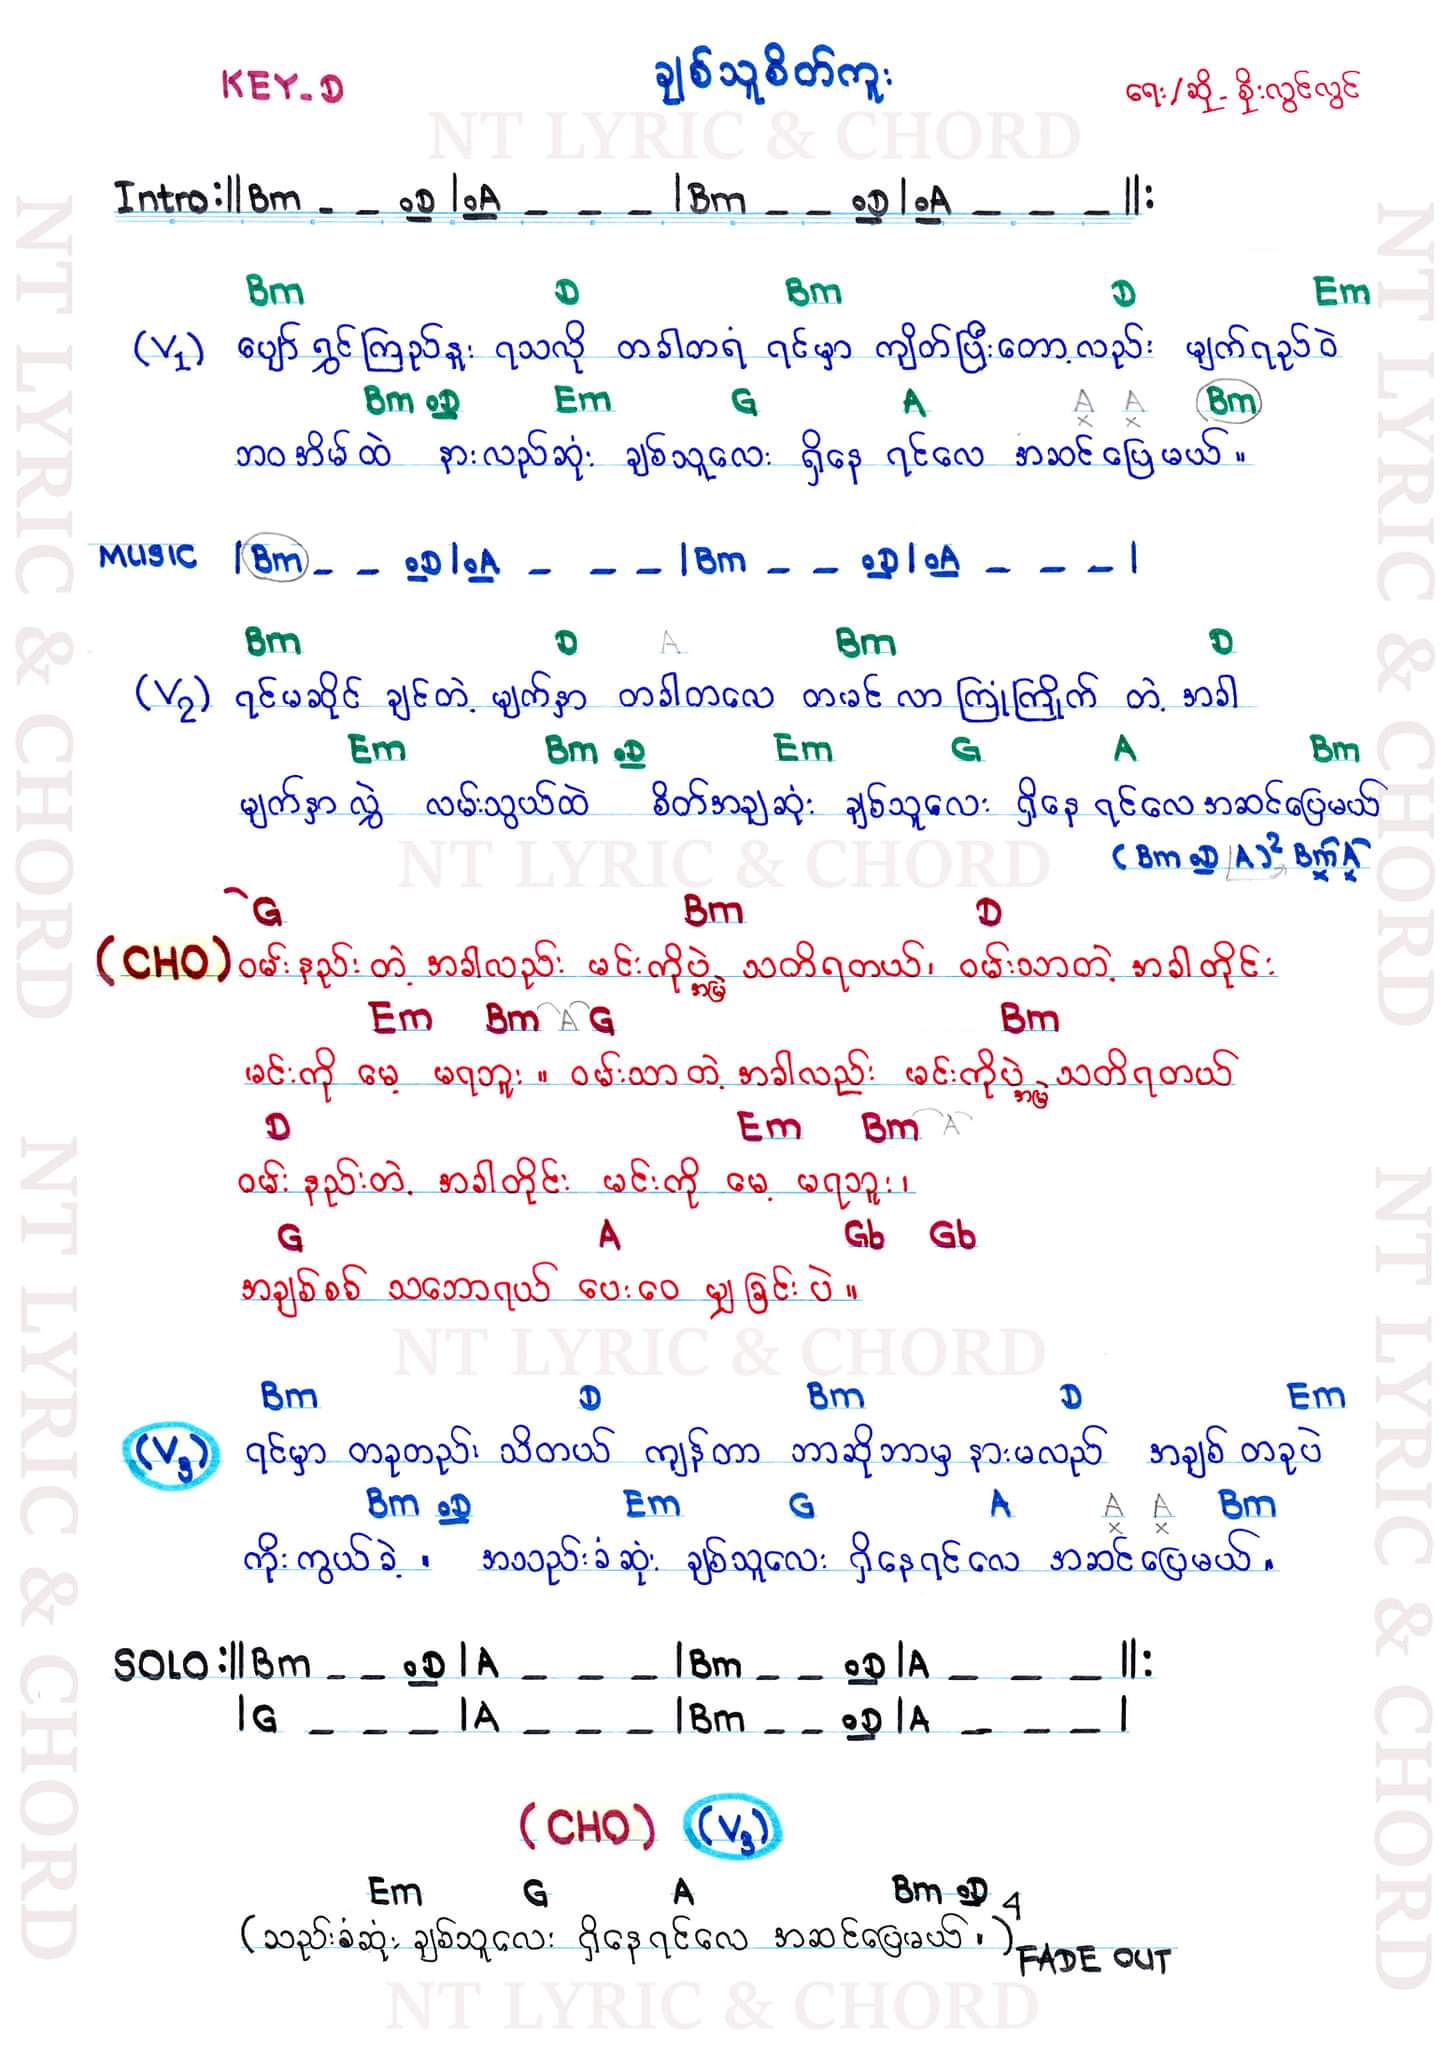 KEY-D
ချစ်သူစိတ်ကူး
ရေး/ဆို - စိုးလွင်လွင်
NT LYRIC & CHORD
Intro:||Bm _ _ oD |oA _ _ _ |Bm _ _ oD |oA _ _ _ ||:
Bm D Bm D Em
(V1) ပျော်ရွှင်ကြည်နူး ရသလို တခါတရံ ရင်မှာ ကျိတ်ပြီးတော့လည်း မျက်ရည်ဝဲ
Bm oD Em G A A A Bm
ဘဝအိမ်ထဲ နားလည်ဆုံး ချစ်သူလေး ရှိနေ ရင်လေ အဆင်ပြေမယ်။
MUSIC |Bm _ _ oD |oA _ _ _ |Bm _ _ oD |oA _ _ _ |
Bm D A Bm D
(V2) ရင်မဆိုင် ချင်တဲ့ မျက်နှာ တခါတလေ တမင်လာ ကြုံကြိုက် တဲ့ အခါ
Em Bm oD Em G A Bm
မျက်နှာလွှဲ လမ်းသွယ်ထဲ စိတ်အချဆုံး ချစ်သူလေး ရှိနေ ရင်လေ အဆင်ပြေမယ်
(Bm oD |A)2 Bm A
NT LYRIC & CHORD
G Bm D
(CHO) ဝမ်းနည်းတဲ့ အခါလည်း မင်းကိုပဲ အမြဲ သတိရတယ်၊ ဝမ်းသာတဲ့ အခါတိုင်း
Em Bm A G Bm
မင်းကို မေ့ မရဘူး။ ဝမ်းသာတဲ့ အခါလည်း မင်းကိုပဲ အမြဲ သတိရတယ်
D Em Bm A
ဝမ်းနည်းတဲ့ အခါတိုင်း မင်းကို မေ့ မရဘူး၊
G A Gb Gb
အချစ်စစ် သဘောရယ် ပေးဝေ မျှခြင်းပဲ။
NT LYRIC & CHORD
Bm D Bm D Em
(V3) ရင်မှာ တခုတည်း သိတယ် ကျန်တာ ဘာဆိုဘာမှ နားမလည် အချစ် တခုပဲ
Bm oD Em G A A A Bm
ကိုးကွယ်ခဲ့။ အသည်းခံဆုံး ချစ်သူလေး ရှိနေရင်လေ အဆင်ပြေမယ်။
SOLO:||Bm _ _ oD |A _ _ _ |Bm _ _ oD |A _ _ _ ||:
|G _ _ _ |A _ _ _ |Bm _ _ oD |A _ _ _ |
(CHO) (V3)
Em G A Bm oD
(သည်းခံဆုံး ချစ်သူလေး ရှိနေရင်လေ အဆင်ပြေမယ်။)4
FADE OUT
NT LYRIC & CHORD
NT LYRIC & CHORD
NT LYRIC & CHORD
NT LYRIC & CHORD
NT LYRIC & CHORD